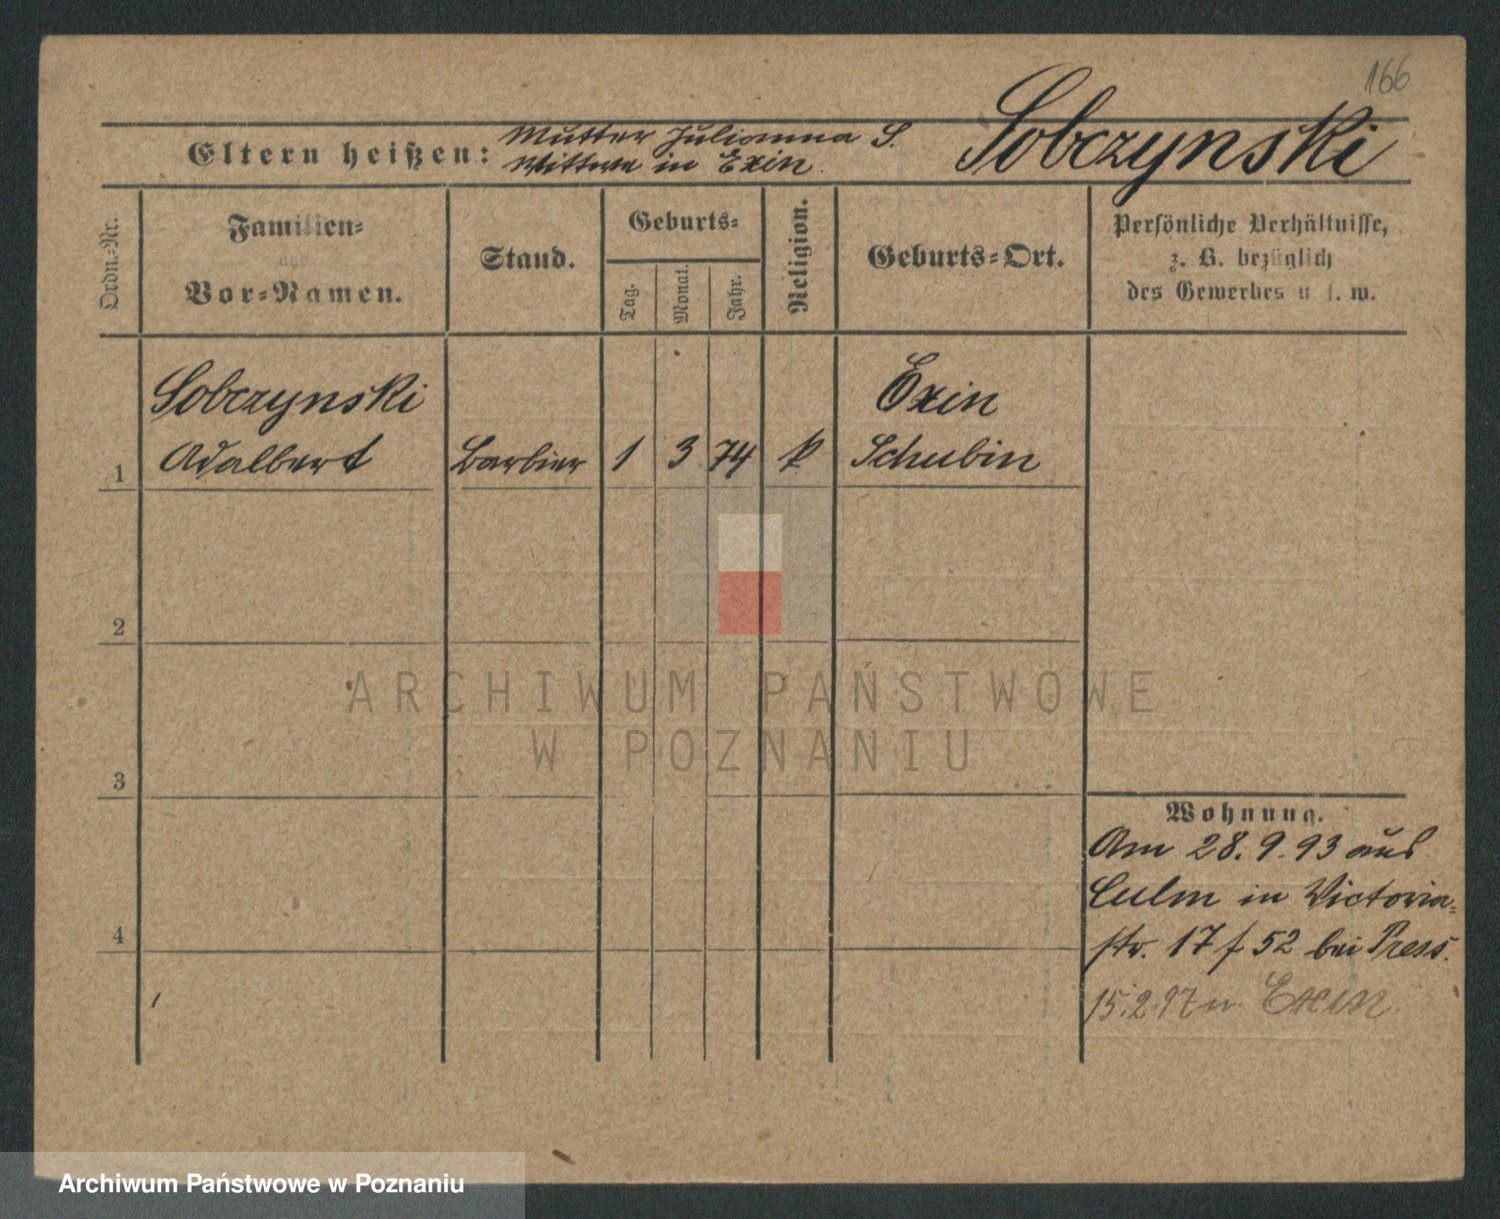 166
Sobczynski
Eltern heißen: Mutter Julianna S.
Wittwe in Exin.
Ordn.-Nr.
Familien-
und
Vor-Namen.
Stand.
Geburts-
Tag.
Monat.
Jahr.
Religion.
Geburts-Ort.
Persönliche Verhältnisse,
z. B. bezüglich
des Gewerbes u. s. w.
Sobczynski Exin
1 Adalbert Barbier 1 3 74 k Schubin
2
ARCHIWUM PAŃSTWOWE
W POZNANIU
3
Wohnung.
Am 28.9.93 aus
Culm in Victoria-
4
str. 17 f 52 bei Press.
15.2.97 n. Exin.
Archiwum Państwowe w Poznaniu